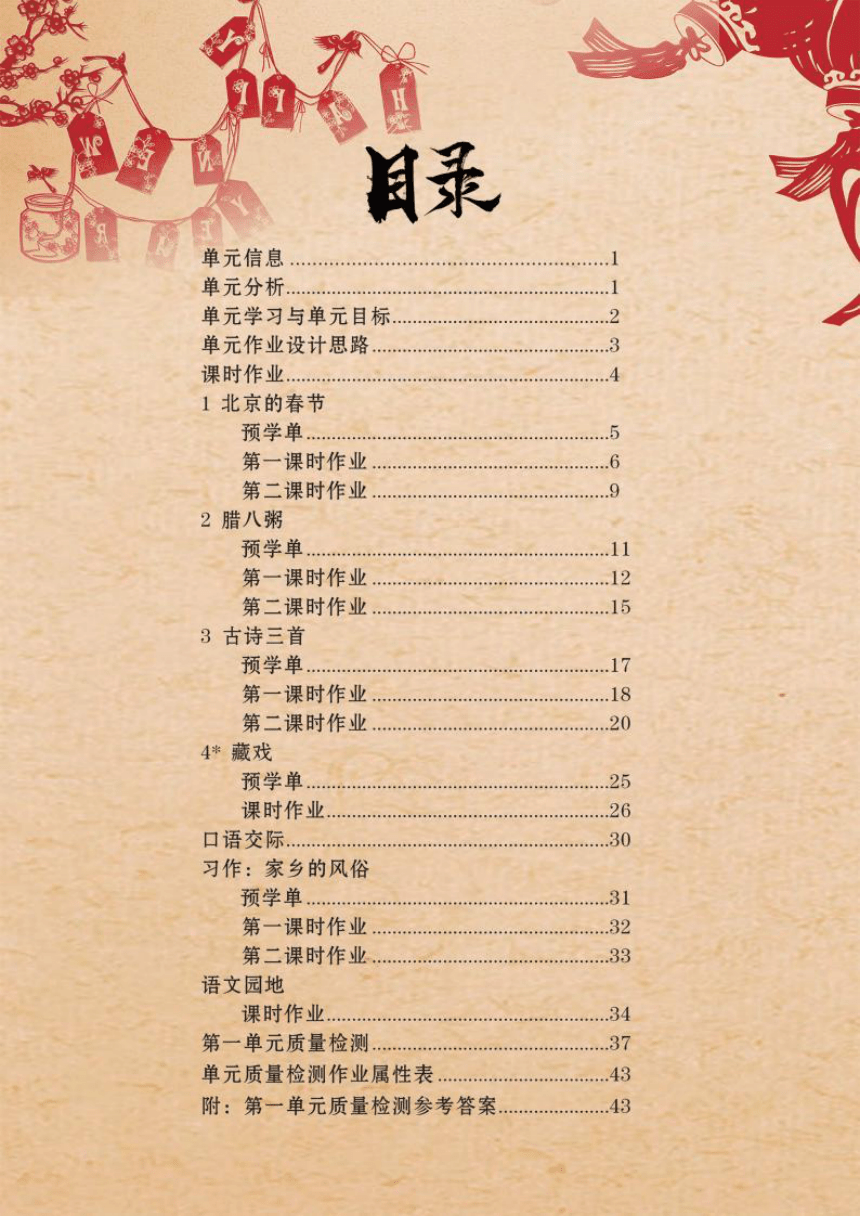 HAPPY
NEW
YEAR
目录
单元信息......1
单元分析......1
单元学习与单元目标......2
单元作业设计思路......3
课时作业......4
1 北京的春节
预学单......5
第一课时作业......6
第二课时作业......9
2 腊八粥
预学单......11
第一课时作业......12
第二课时作业......15
3 古诗三首
预学单......17
第一课时作业......18
第二课时作业......20
4* 藏戏
预学单......25
课时作业......26
口语交际......30
习作：家乡的风俗
预学单......31
第一课时作业......32
第二课时作业......33
语文园地
课时作业......34
第一单元质量检测......37
单元质量检测作业属性表......43
附：第一单元质量检测参考答案......43